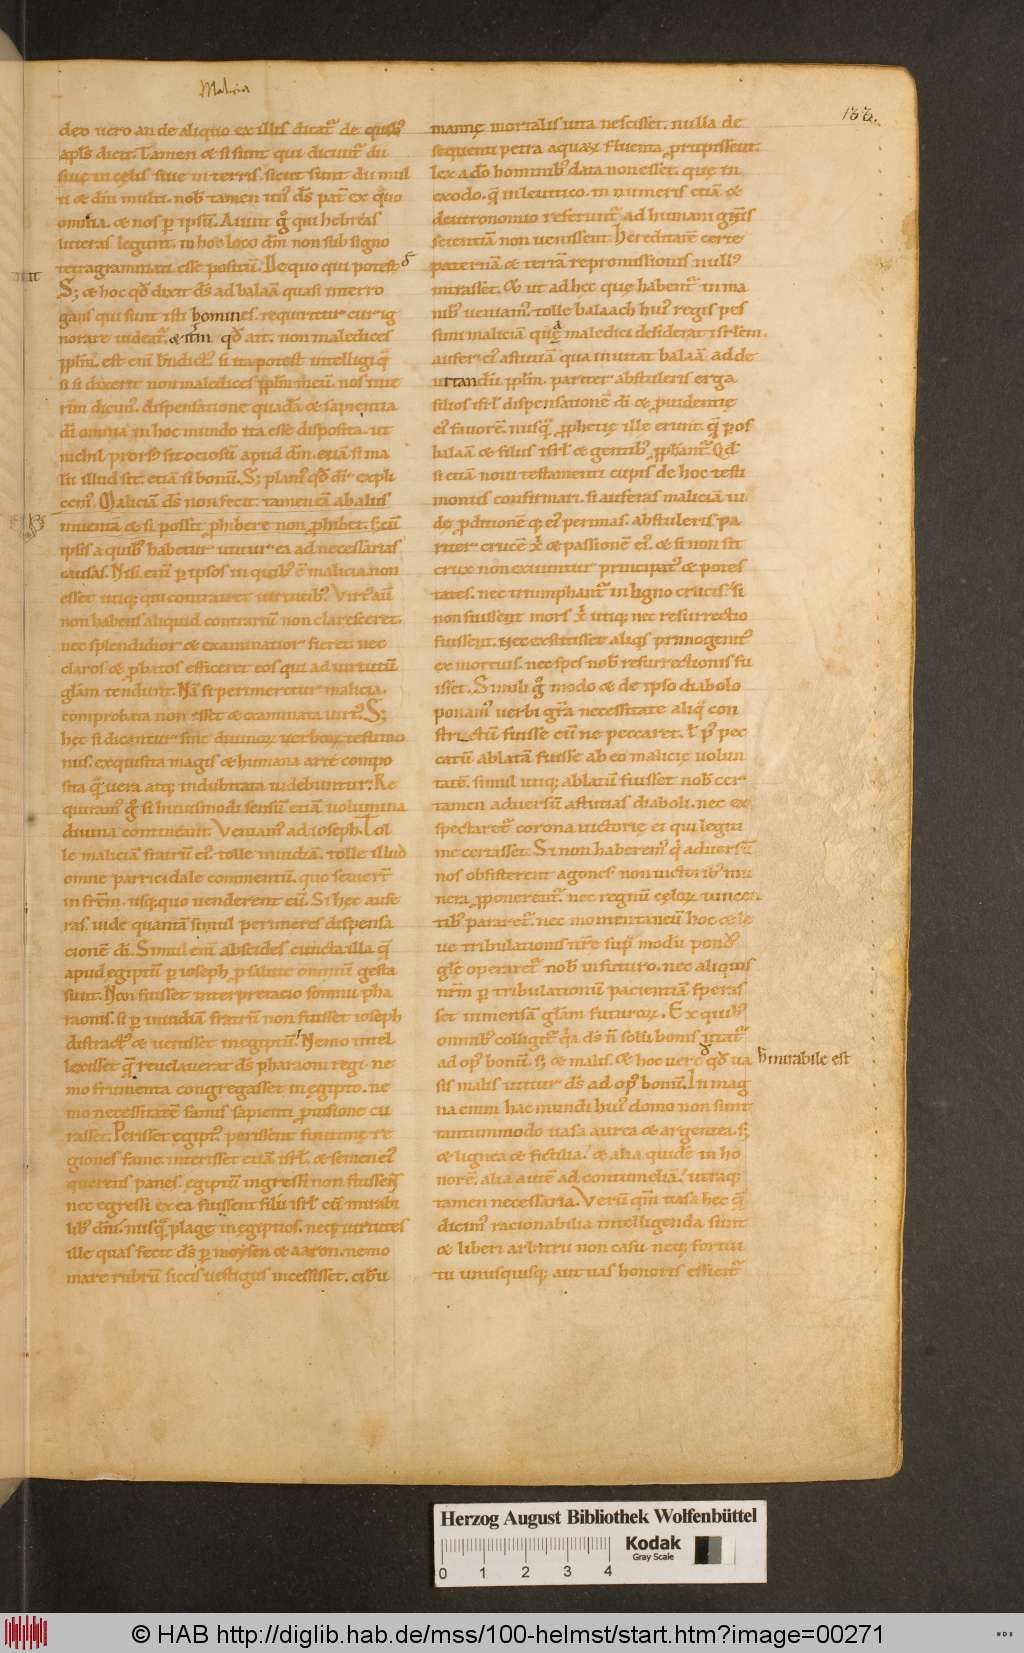 Malicia
133.
deo vero an de aliquo ex illis dicat᷑ de quibꝰ
apl's dicit. Tamen & si sunt qui dicunt᷑ dii
siue in cęlis siue in terris. sicut sunt dii mul
ti & dn̄i multi. nob̄ tamen unꝰ ds̄ pat̄ ex quo
omnia. & nos ꝑ ipsū. Aiunt g̊ qui hebreas
litteras legunt. in hoc loco dm̄ non sub signo
tetragrammati esse positū. De quo qui potest
& hoc qd̄ dixit ds̄ ad balaā quasi interro
gans qui sunt isti homines. requiritur cur ig
norare uideat᷑. & itm̄ qd̄ ait. non maledices
ppl̄m. est eni b̄ndictꝰ. si ita potest intelligi q̄
si si dixerit non maledices ppl̄m meū. nos inue
dispensatione quadā & sapientia
di omnia in hoc mundo ita esse disposita. ut
nichil prorsꝰ sit ociosū apud dm̄. etiā si ma
lū illud sit. etiā si bonū. S; planiꝰ qd̄ dicit᷑ expli
cemꝰ. Maliciā ds̄ non fecit. tamen eā ab aliis
inuentā & si possit ꝓhibere non ꝓhibet. s; cū
ipsis a quibꝰ habetur utitur ea ad necessarias
causas. Nisi enī ꝑ ipsos in quibꝰ ē malicia. non
esset utiq; qui contrairet uirtutibꝰ. Virtꝰ aūt
non habens aliquid contrariū non claresceret.
nec splendidior & examinatior fieret. nec
claros & ꝓbatos efficeret eos qui ad uirtutū
gl̄am tendunt. Nā si perimeretur malicia.
comprobata non esset & examinata uirtꝰ. S;
hęc si dicantur sine diuinoꝝ uerboꝝ testimo
niis. exquisita magis & humana arte compo
sita q̄ uera atq; indubitata uidebuntur. Re
quiramꝰ g̊ si huiusmodi sensū etiā uolumina
diuina contineant. Veniamꝰ ad ioseph. Tol
le maliciā fratrū eiꝰ. tolle inuidiā. tolle illud
omne parricidale commentū. quo seuierr̄
in frēm. usq; quo uenderent eū. Si hęc aufe
ras. uide quantā simul perimeres dispensa
cionē di. Simul eni abscides cuncta illa q̄
apud egiptū ꝑ ioseph ꝓ salute omniū gesta
sunt. Non fuisset interpretacio somnii pha
raonis. si ꝑ inuidiā fratrū non fuisset ioseph
distractꝰ & uenisset in egiptū. Nemo intel
lexisset q̄ reuelauerat ds̄ pharaoni regi. ne
mo frumenta congregasset in egipto. ne
mo necessitatē famis sapienti ꝓuisione cu
rasset. Perisset egiptꝰ. perissent finitimę re
giones fame. interisset etiā isrl̄. & semen eiꝰ
querens panes. egiptū ingressi non fuissent.
nec egressi ex ea fuissent filii isrl̄ cū mirabi
libꝰ dn̄i. nusq̄ plagę in egiptios. neq; uirtutes
ille quas fecit ds̄ ꝑ moysen & aaron. nemo
mare rubrū siccis uestigiis incessisset. cibū
mannę mortalis uita nescisset. nulla de
sequenti petra aquaꝝ fluenta ꝓrupissent.
lex a dō hominibꝰ data non esset. quę in
exodo. q̄ in leuitico. in numeris etiā &
deutronomio referunt᷑ ad humani gn̄is
scientiā non uenissent. Hereditatē certe
paternā & terrā repromissionis nullꝰ
intrasset. Et ut ad hęc quę habent᷑ in ma
nibꝰ ueniamꝰ. tolle balaach huiꝰ regis pes
simi maliciā qua maledici desiderat isrl̄em.
aufer eiꝰ astutiā qua inuitat balaā ad de
uitandū ppl̄m. pariter abstuleris erga
filios isrl̄ dispensationē di & ꝓuidentię
eiꝰ fauorē. nusq̄ ꝓphetię ille erunt q̄ ꝑ os
balaā & filiis isrl̄ & gentibꝰ ꝓphant᷑. Qd̄
si etiā noui testamenti cupis de hoc testi
moniis confirmari. si auferas maliciā iu
dę ꝓditionē q; eiꝰ perimas. abstuleris pa
riter crucē xp̄i & passionē eiꝰ. & si non sit
crux non exuuntur principatꝰ & potes
tates. nec triumphant᷑ in ligno crucis. si
non fuissent mors xp̄i utiq; nec resurrectio
fuissent. nec exstitisset aliqs primogenitꝰ
ex mortuis. nec spes nob̄ resurrectionis fu
isset. Simili g̊ modo & de ipso diabolo
ponamꝰ uerbi grā necessitate aliq̄ con
strictū fuisse eū ne peccaret. l̄ pꝰ pec
catū ablatā fuisse ab eo malicię uolun
tatē. simul utiq; ablatū fuisset nob̄ cer
tamen aduersū astutias diaboli. nec ex
spectaret᷑ corona uictorię ei qui legiti
me certasset. Si non haberemꝰ q̄ aduersū
nos obsisterent agones. non uictoribꝰ mu
nera ꝓponerent᷑. nec regnū cęloꝝ uincen
tibꝰ pararet᷑. nec momentaneū hoc & le
ue tribulationis nr̄e supra modū pondꝰ
glę operaret᷑ nob̄ in futuro. nec aliquis
nr̄m ꝑ tribulationū pacientiā speras
set inmensā gl̄am futuroꝝ. Ex quibꝰ
omnibꝰ colligit᷑ q̄a ds̄ n̄ soli bonis utat᷑
ad opꝰ bonū. s; & malis. & hoc vere qd̄ ua
h̄ mirabile est
sis malis utitur ds̄ ad opꝰ bonū. In mag
na enim hac mundi huiꝰ domo non sunt
tantummodo uasa aurea & argentea. s;
& lignea & fictilia. & alia quidē in ho
norē. alia autē ad contumeliā. utraq;
tamen necessaria. Verū qm̄ uasa hęc q̄
dicimꝰ racionabilia intelligenda sunt
& liberi arbitrii non casu neq; fortui
tu unusquisq; aut uas honoris efficit᷑
Herzog August Bibliothek Wolfenbüttel
Kodak
Gray Scale
0 1 2 3 4
© HAB http://diglib.hab.de/mss/100-helmst/start.htm?image=00271